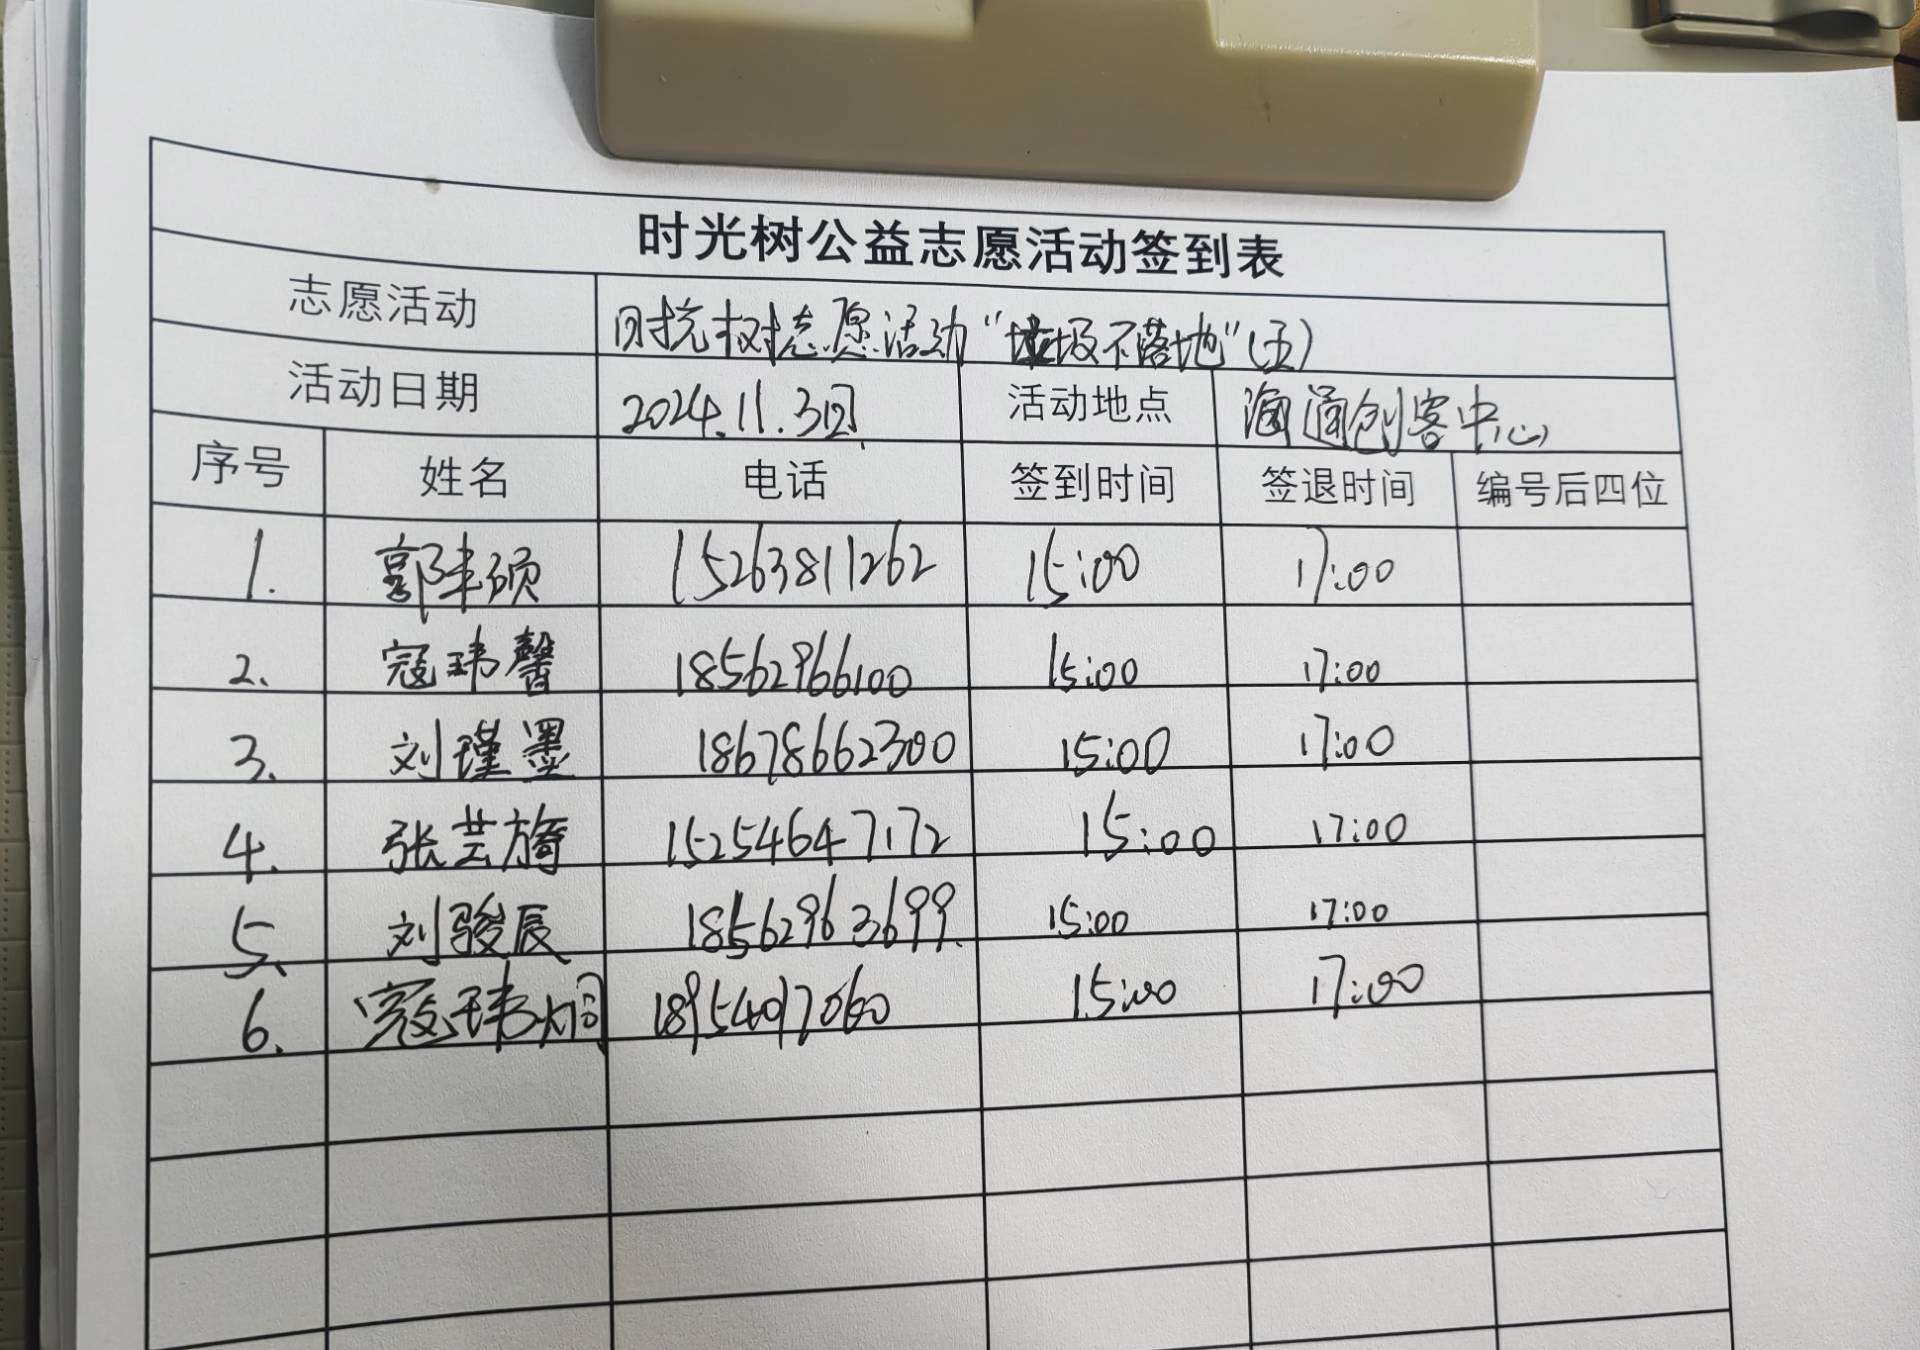 时光树公益志愿活动签到表
志愿活动 时光树志愿活动“垃圾不落地”(五)
活动日期 2024.11.3日 活动地点 海通创客中心
序号 姓名 电话 签到时间 签退时间 编号后四位
1. 郭丰硕 15263811262 15:00 17:00
2. 寇玮馨 18562966100 15:00 17:00
3. 刘瑾墨 18678662300 15:00 17:00
4. 张芸旖 15254647172 15:00 17:00
5. 刘骏辰 18562963699 15:00 17:00
6. 寇玮炯 18954097060 15:00 17:00